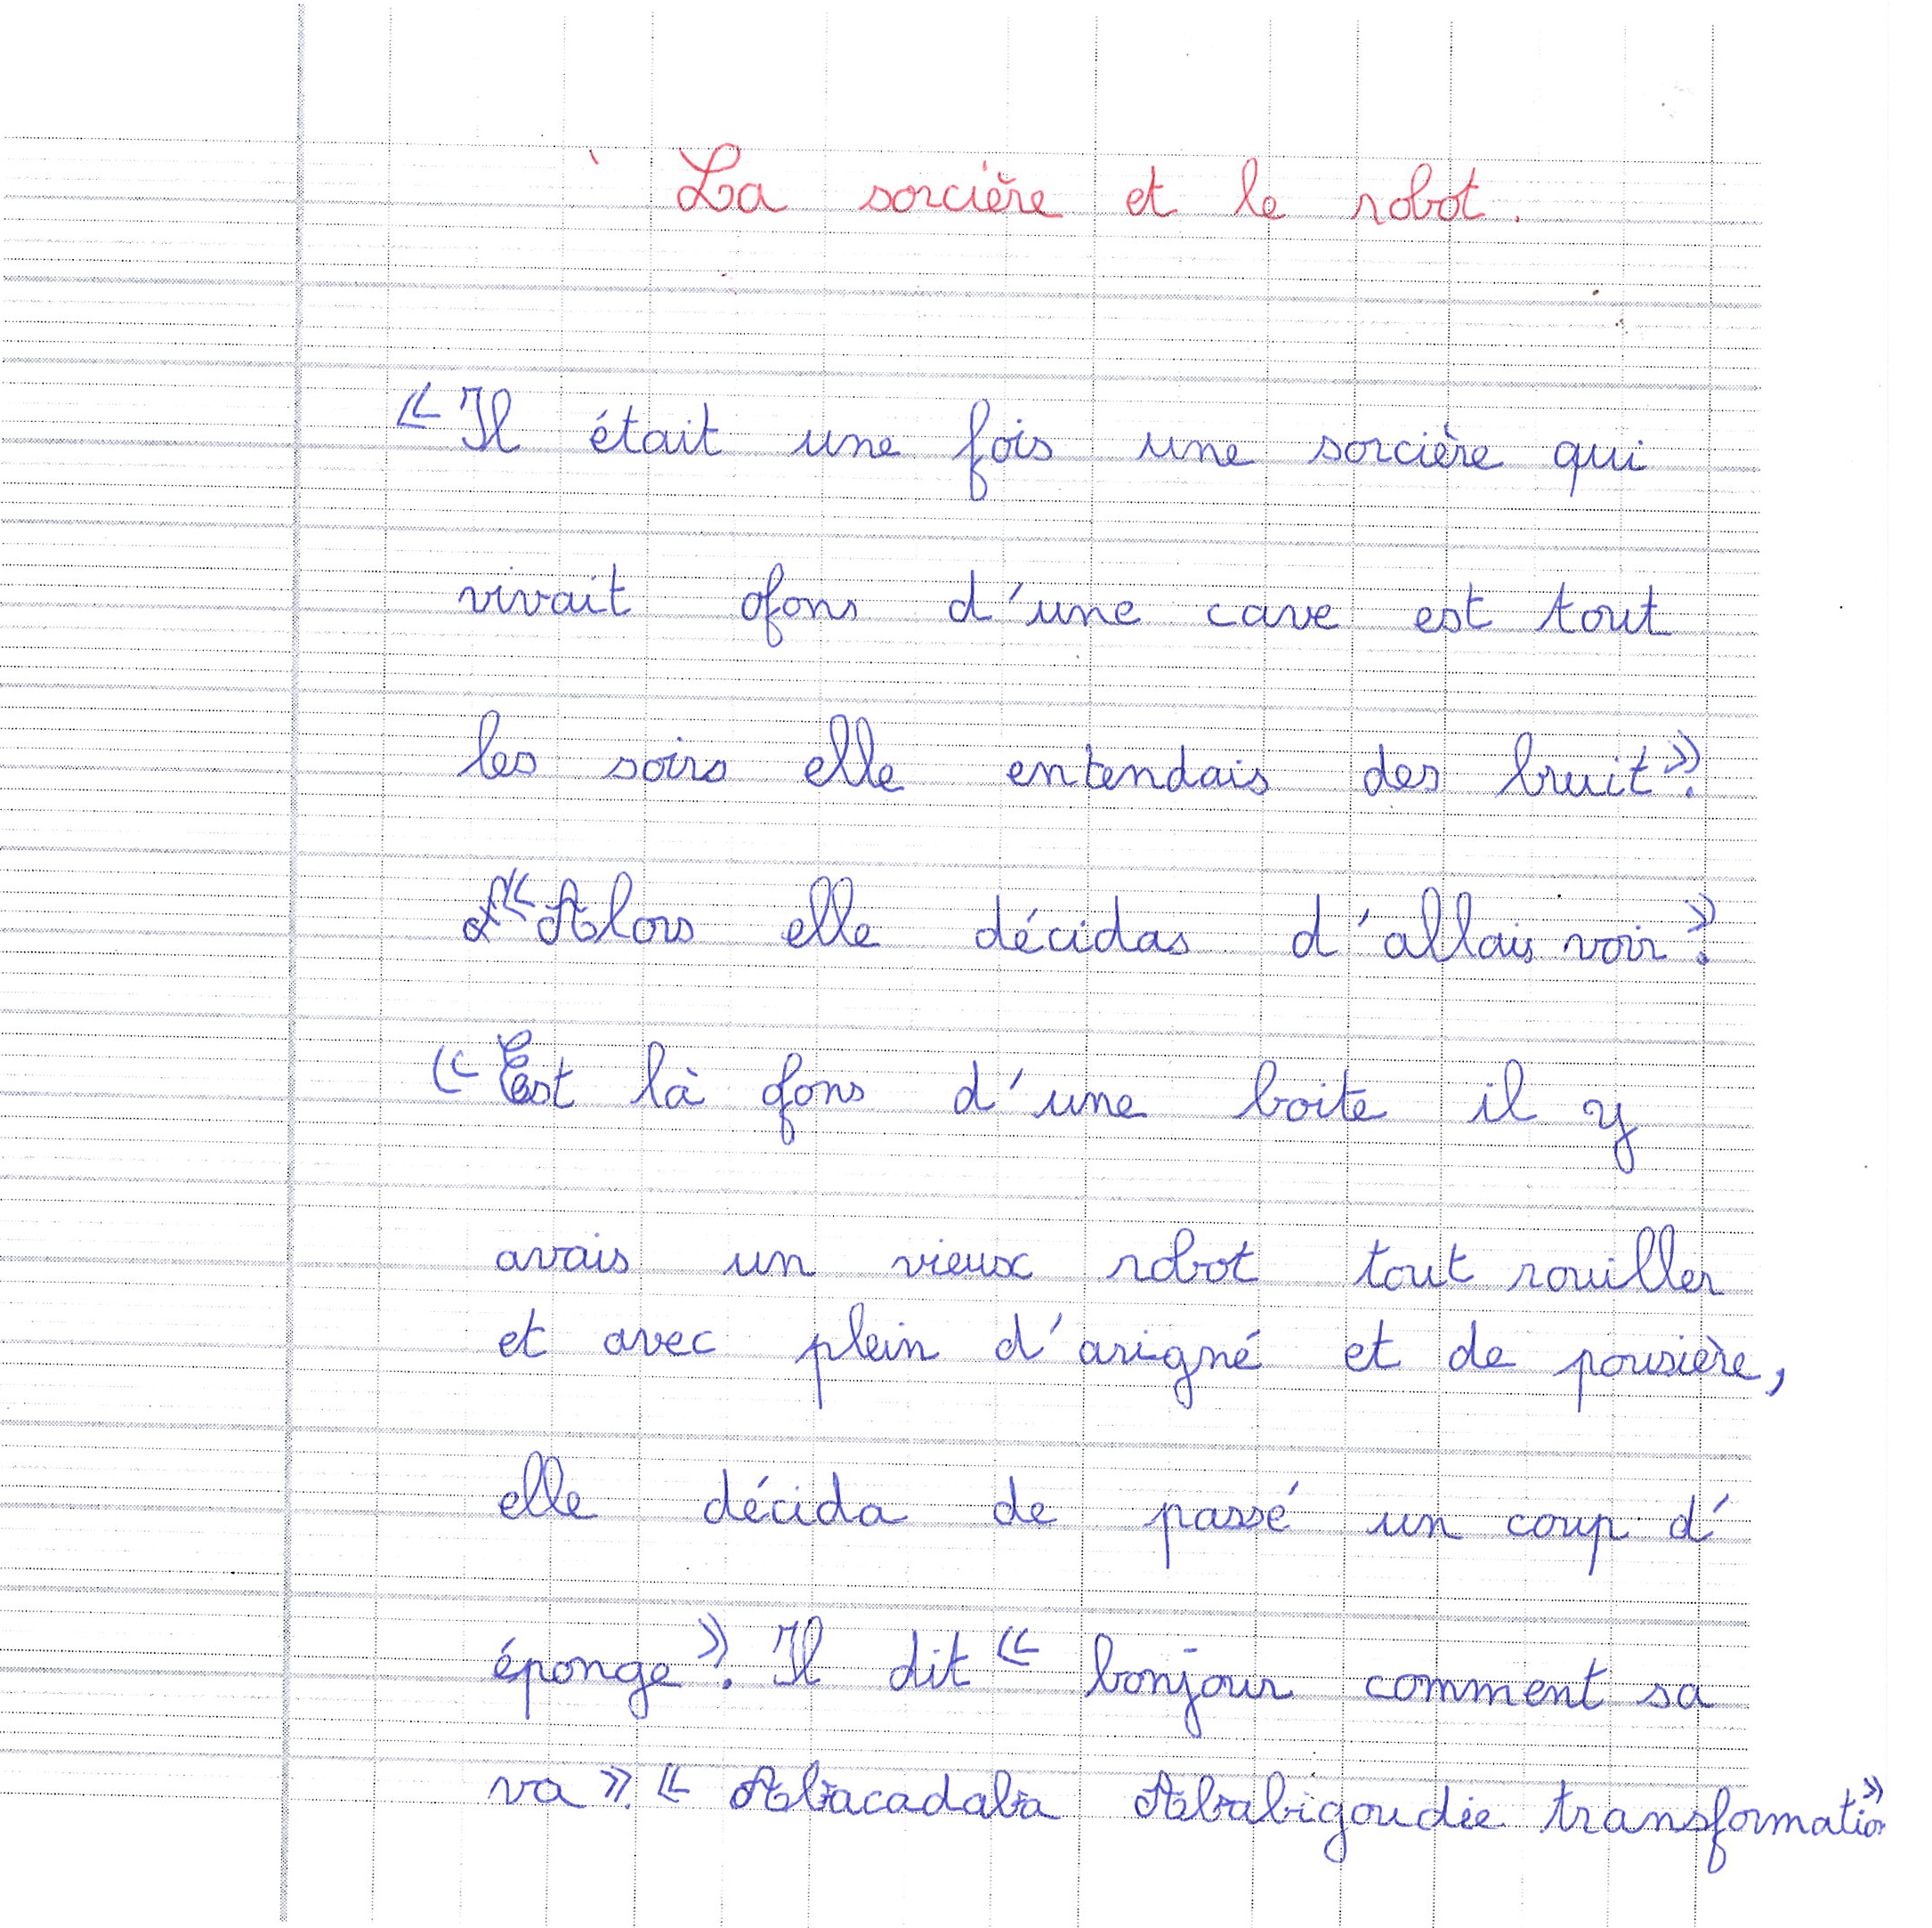 La sorcière et le robot.
« Il était une fois une sorcière qui
vivait ofons d'une cave est tout
les soirs elle entendais des bruit ».
« Alors elle décidas d'allais voir ».
« Est là ofons d'une boite il y
avais un vieux robot tout rouiller
et avec plein d'arigné et de pousière,
elle décida de passé un coup d'
éponge ». Il dit « bonjour comment sa
va ». « Abracadabra Abrabigoudie transformation »